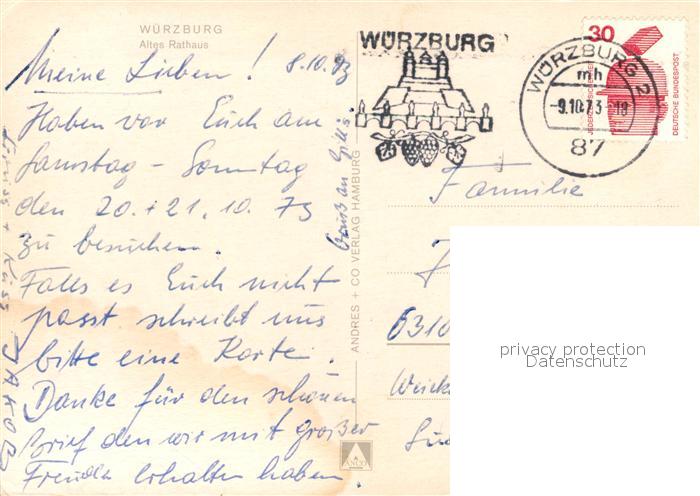 WÜRZBURG
Altes Rathaus
Meine Lieben! 8.10.73
Haben vor Euch am
Samstag - Sonntag
den 20.+21.10.73
zu besuchen.
Falls es Euch nicht
passt schreibt uns
bitte eine Karte.
Danke für den schönen
Brief den wir mit großer
Freude erhalten haben.
Gruss + Kuss JAKOB
Gruß an
ANDRES + CO VERLAG HAMBURG
ANCO
WÜRZBURG
WÜRZBURG 2
mh
-9.10.73-18
87
30
JEDERZEIT SICHERHEIT
DEUTSCHE BUNDESPOST
Familie
6310
privacy protection
Datenschutz